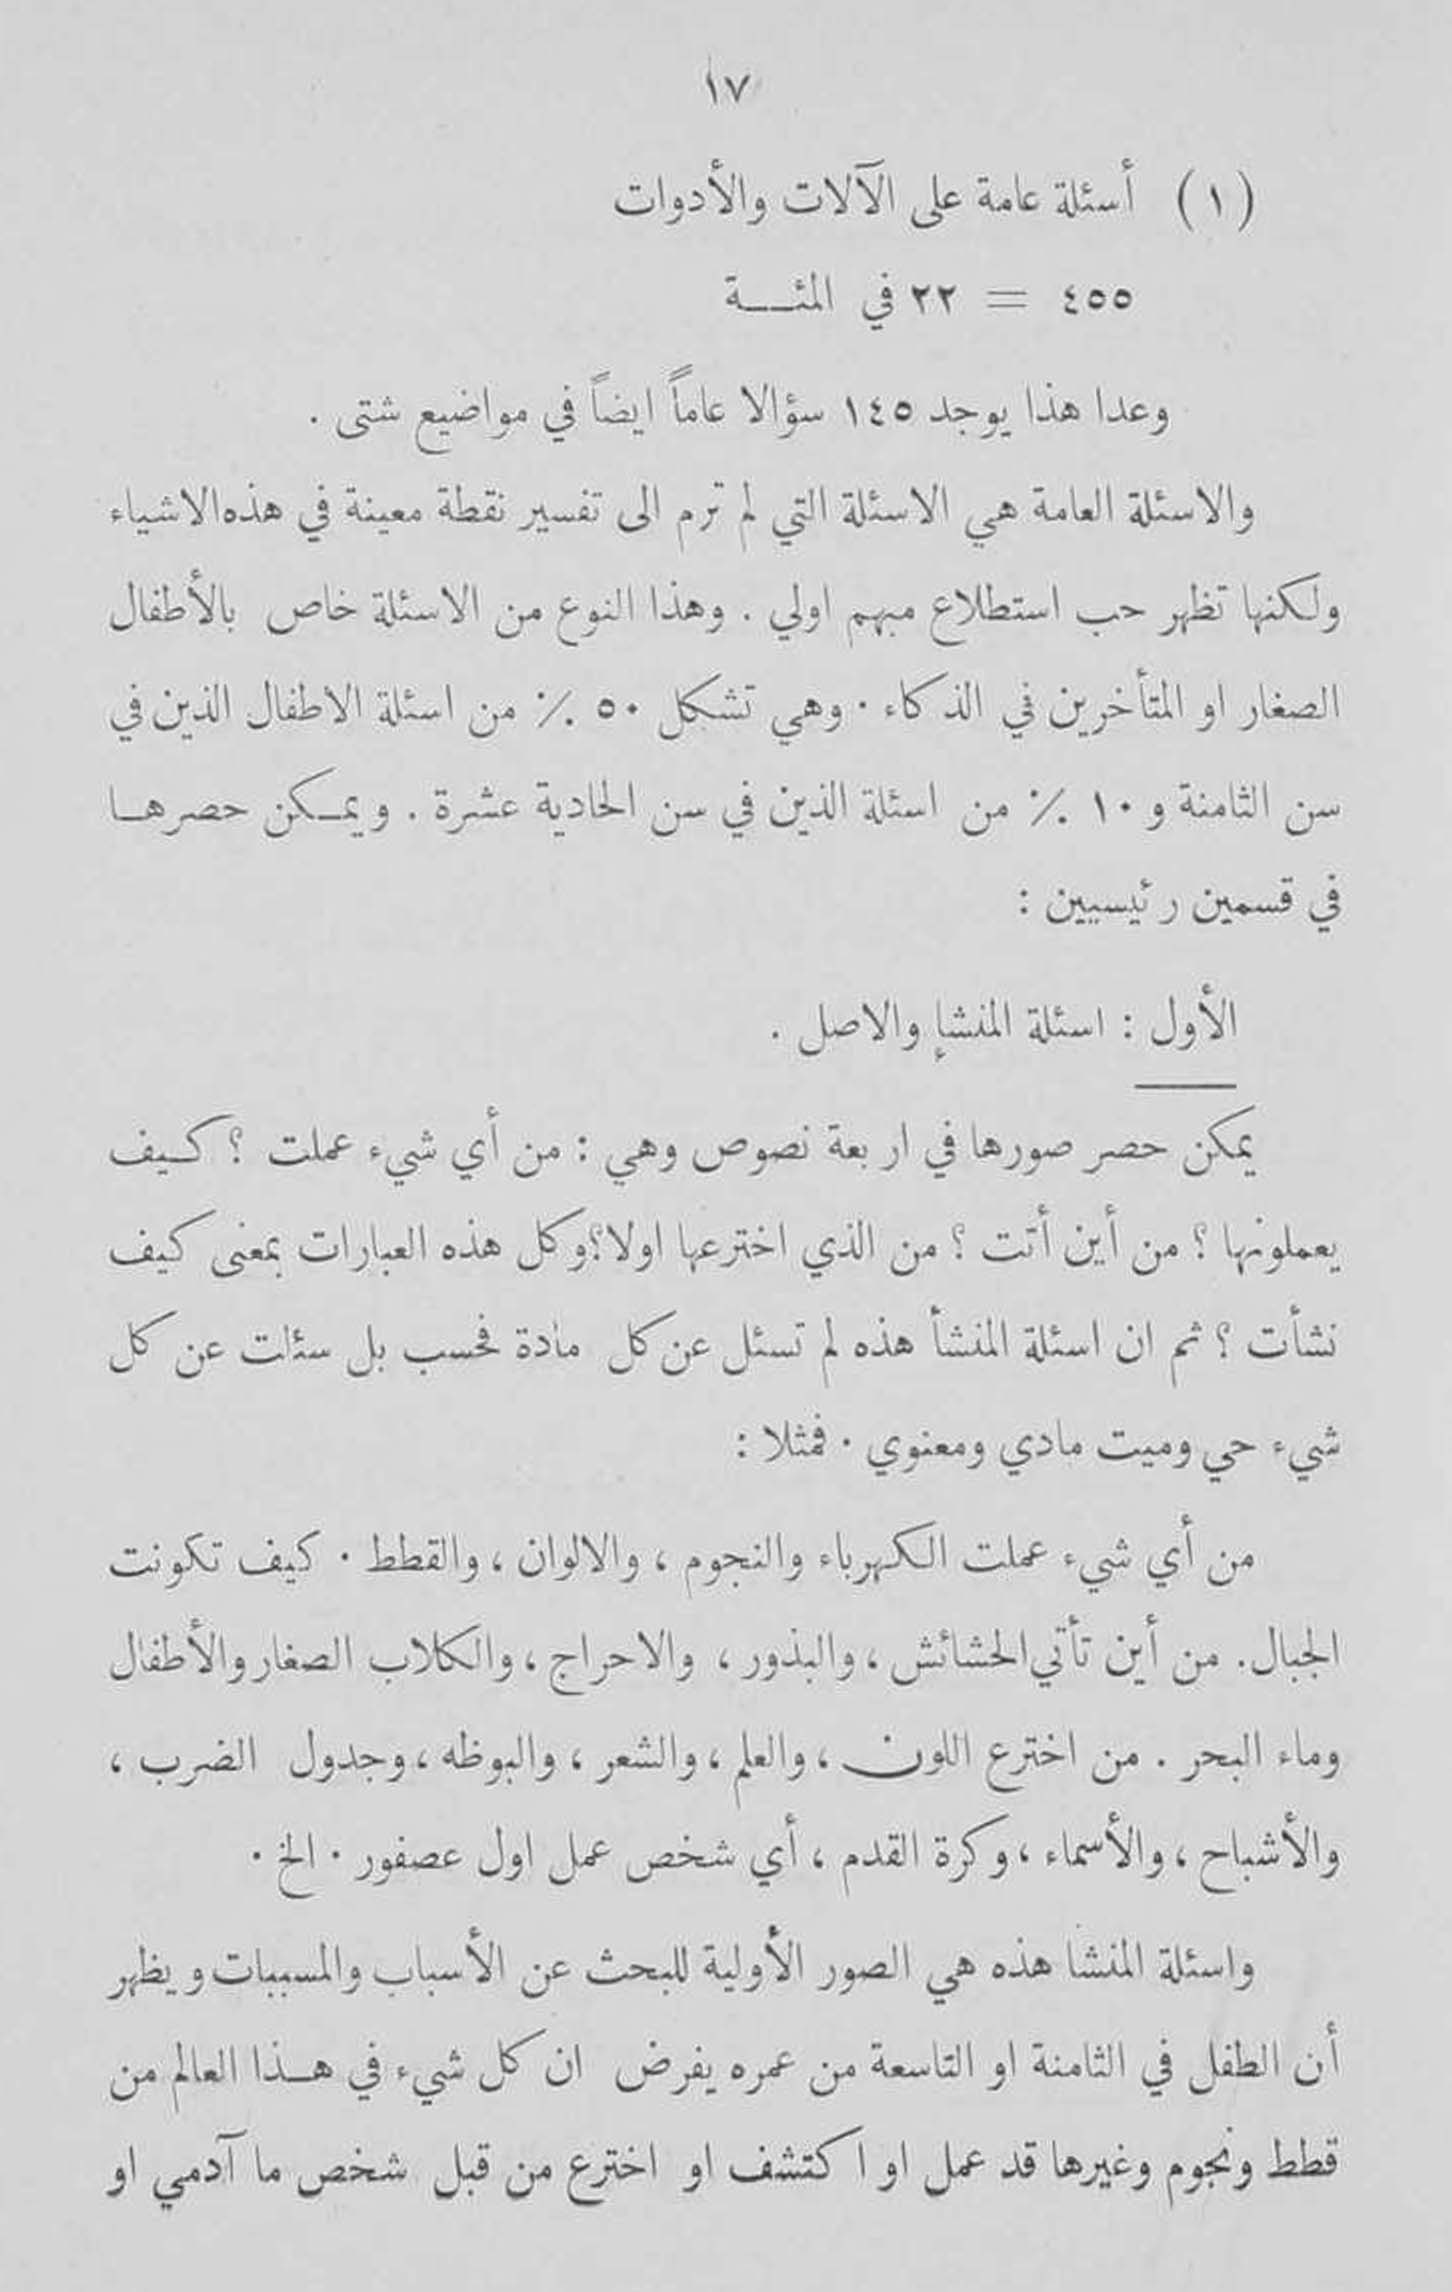 ١٧
(١) أسئلة عامة على الآلات والأدوات
٤٥٥ = ٢٢ في المئـــة
وعدا هذا يوجد ١٤٥ سؤالا عاماً ايضاً في مواضيع شتى .
والاسئلة العامة هي الاسئلة التي لم ترم الى تفسير نقطة معينة في هذه الاشياء
ولكنها تظهر حب استطلاع مبهم اولي . وهذا النوع من الاسئلة خاص بالأطفال
الصغار او المتأخرين في الذكاء . وهي تشكل ٥٠ ٪ من اسئلة الاطفال الذين في
سن الثامنة و ١٠ ٪ من اسئلة الذين في سن الحادية عشرة . ويمـكن حصرهـا
في قسمين رئيسيين :
الأول : اسئلة المنشإ والاصل .
يمكن حصر صورها في اربعة نصوص وهي : من أي شيء عملت ؟ كـيف
يعملونها ؟ من أين أتت ؟ من الذي اخترعها اولا؟ وكل هذه العبارات بمعنى كيف
نشأت ؟ ثم ان اسئلة المنشأ هذه لم تسئل عن كل مادة فحسب بل سئلت عن كل
شيء حي وميت مادي ومعنوي . فمثلا :
من أي شيء عملت الكهرباء والنجوم ، والالوان ، والقطط . كيف تكونت
الجبال . من أين تأتي الحشائش ، والبذور ، والاحراج ، والكلاب الصغار والأطفال
وماء البحر . من اخترع اللون ، والعلم ، والشعر ، والبوظه ، وجدول الضرب ،
والأشباح ، والأسماء ، وكرة القدم ، أي شخص عمل اول عصفور . الخ .
واسئلة المنشا هذه هي الصور الأولية للبحث عن الأسباب والمسببات ويظهر
أن الطفل في الثامنة او التاسعة من عمره يفرض ان كل شيء في هـذا العالم من
قطط ونجوم وغيرها قد عمل او اكتشف او اخترع من قبل شخص ما آدمي او